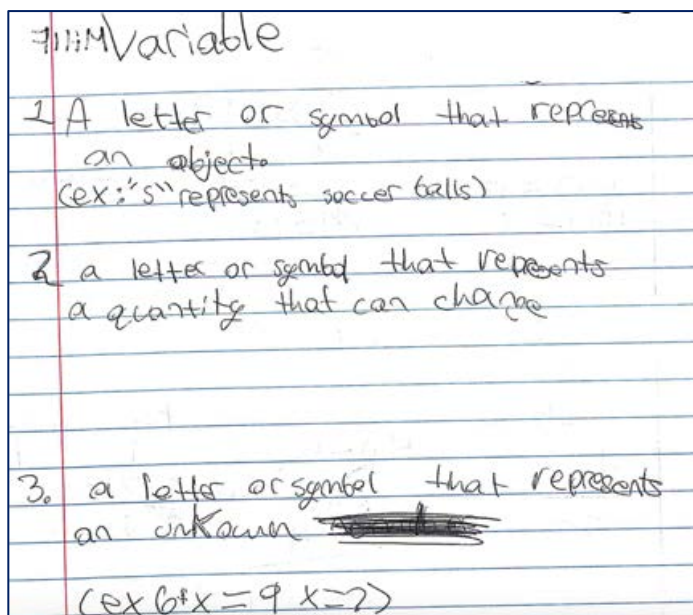 Variable
1 A letter or symbol that represents
an object.
(ex: "s" represents soccer balls)
2 a letter or symbol that represents
a quantity that can change
3. a letter or symbol that represents
an unknown
(ex 6*x=9 x=?)